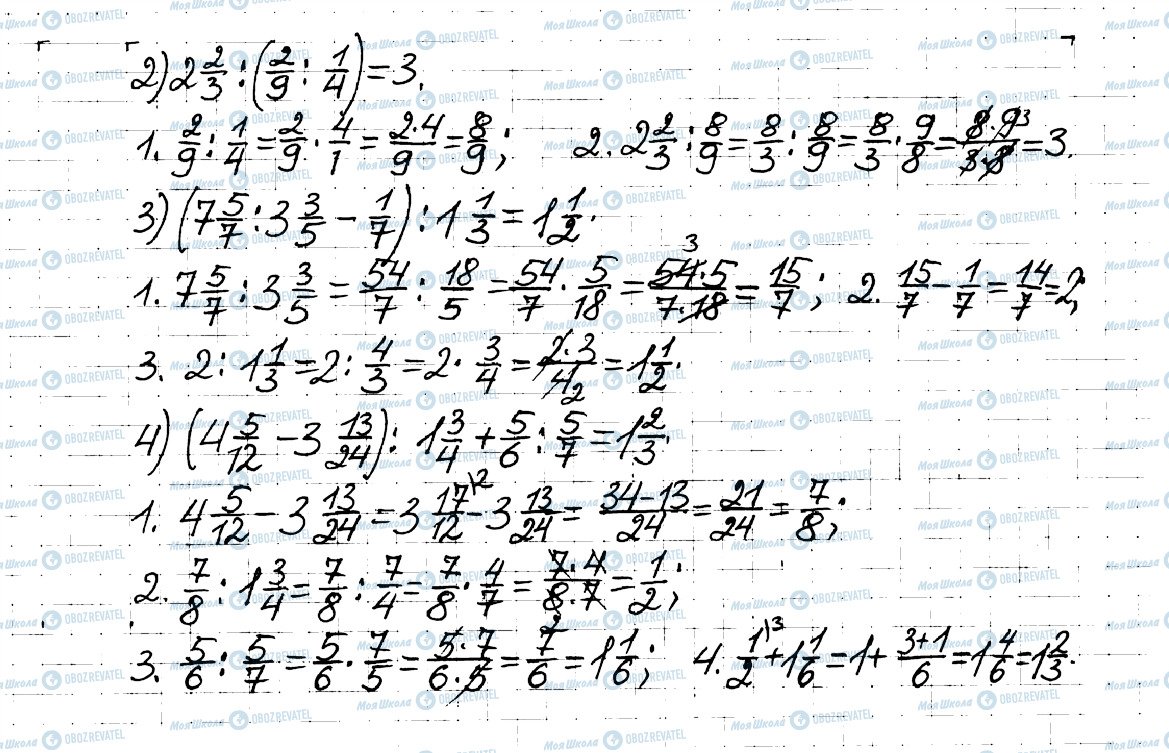 2) 2 2/3 : (2/9 : 1/4) = 3.
1. 2/9 : 1/4 = 2/9 · 4/1 = 2·4/9 = 8/9; 2. 2 2/3 : 8/9 = 8/3 : 8/9 = 8/3 · 9/8 = 8·9 3/3·8 = 3.
3) (7 5/7 : 3 3/5 - 1/7) : 1 1/3 = 1 1/2.
1. 7 5/7 : 3 3/5 = 54/7 : 18/5 = 54/7 · 5/18 = 3 54·5/7·18 = 15/7; 2. 15/7 - 1/7 = 14/7 = 2;
3. 2 : 1 1/3 = 2 : 4/3 = 2 · 3/4 = 2·3/4 2 = 1 1/2.
4) (4 5/12 - 3 13/24) : 1 3/4 + 5/6 : 5/7 = 1 2/3.
1. 4 5/12 - 3 13/24 = 3 17/12 |2 - 3 13/24 = 34-13/24 = 21/24 = 7/8;
2. 7/8 : 1 3/4 = 7/8 : 7/4 = 7/8 · 4/7 = 7·4/8·7 2 = 1/2;
3. 5/6 : 5/7 = 5/6 · 7/5 = 5·7/6·5 = 7/6 = 1 1/6; 4. 1/2 |3 + 1 1/6 = 1 + 3+1/6 = 1 4/6 = 1 2/3.
Моя Школа OBOZREVATEL